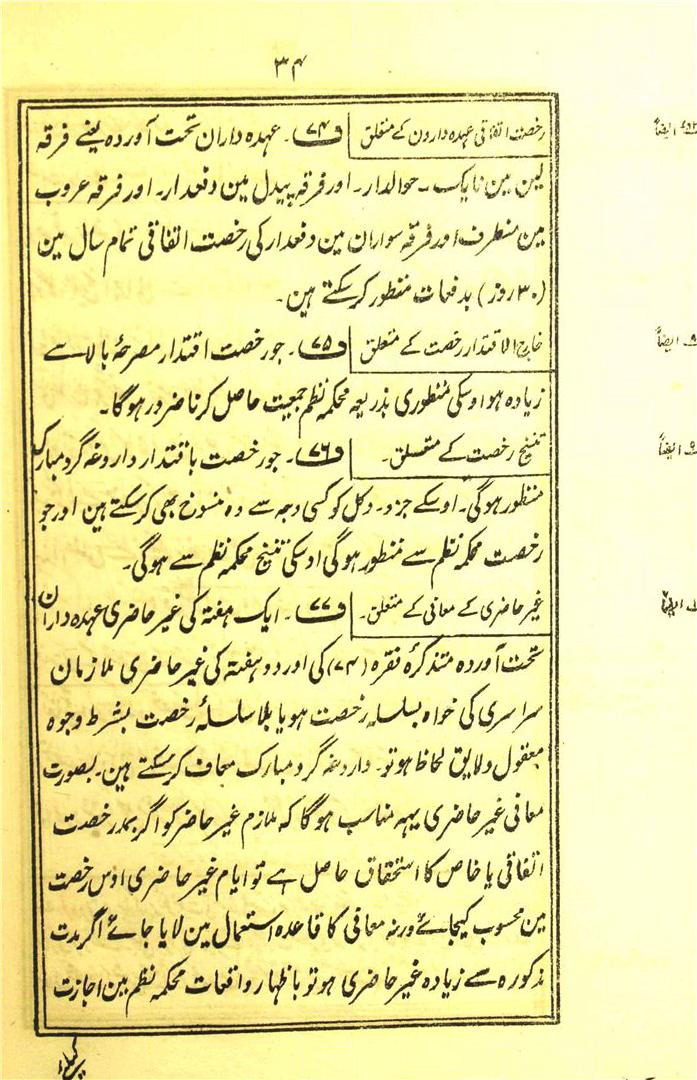 ۳۴
رخصت اتفاقی عہدہ داردن کے متعلق ف۷۴۔ عہدہ داران تحت آوردہ یعنے فرقہ
لین مین نایک۔ حوالدار۔ اور فرقہ پیدل مین دفعدار۔ اور فرقہ عروب
مین منطرف اور فرقہ سواران مین دفعدار کی رخصت اتفاقی تمام سال مین
(۳۰ روز) بدفعات منظور کرسکتے ہین۔
خارج الاقتدار رخصت کے متعلق ف۷۵۔ جو رخصت اقتدار مصرحۂ بالا سے
زیادہ ہو اوسکی منظوری بذریعہ محکمہ نظم جمعیت حاصل کرنا ضرور ہوگا۔
تنسیخ رخصت کے متعلق۔ ف۷۶۔ جو رخصت باقتدار داروغہ گرد مبارک
منظور ہوگی۔ اوسکے جزو۔ دکل کو کسی وجہ سے وہ منسوخ بھی کرسکتے ہین اور جو
رخصت محکمہ نظم سے منظور ہوگی اوسکی تنسیخ محکمہ نظم سے ہوگی۔
غیر حاضری کے معانی کے متعلق۔ ف۷۷۔ ایک ہفتہ کی غیر حاضری عہدہ داران
تحت آوردہ متذکرۂ فقرہ (۷۴) کی اور دو ہفتہ کی غیر حاضری ملازمان
سراسری کی خواہ بسلسلہ رخصت ہو یا بلا سلسلۂ رخصت بشرط وجوہ
معقول ولایق لحاظ ہو تو۔ داردغہ گرد مبارک معاف کرسکتے ہین۔ بصورت
معافی غیر حاضری یہہ مناسب ہوگا کہ ملازم غیر حاضر کو اگر بمد رخصت
اتفاقی یا خاص کا استحقاق حاصل ہے تو ایام غیر حاضری اوس رخصت
مین محسوب کیجائے ورنہ معافی کا قاعدہ استعمال مین لایا جائے اگر مدت
مذکورہ سے زیادہ غیر حاضری ہو تو باظہار واقعات محکمہ نظم مین اجازت
ایضاً
ایضاً
ایضاً
ایضاً